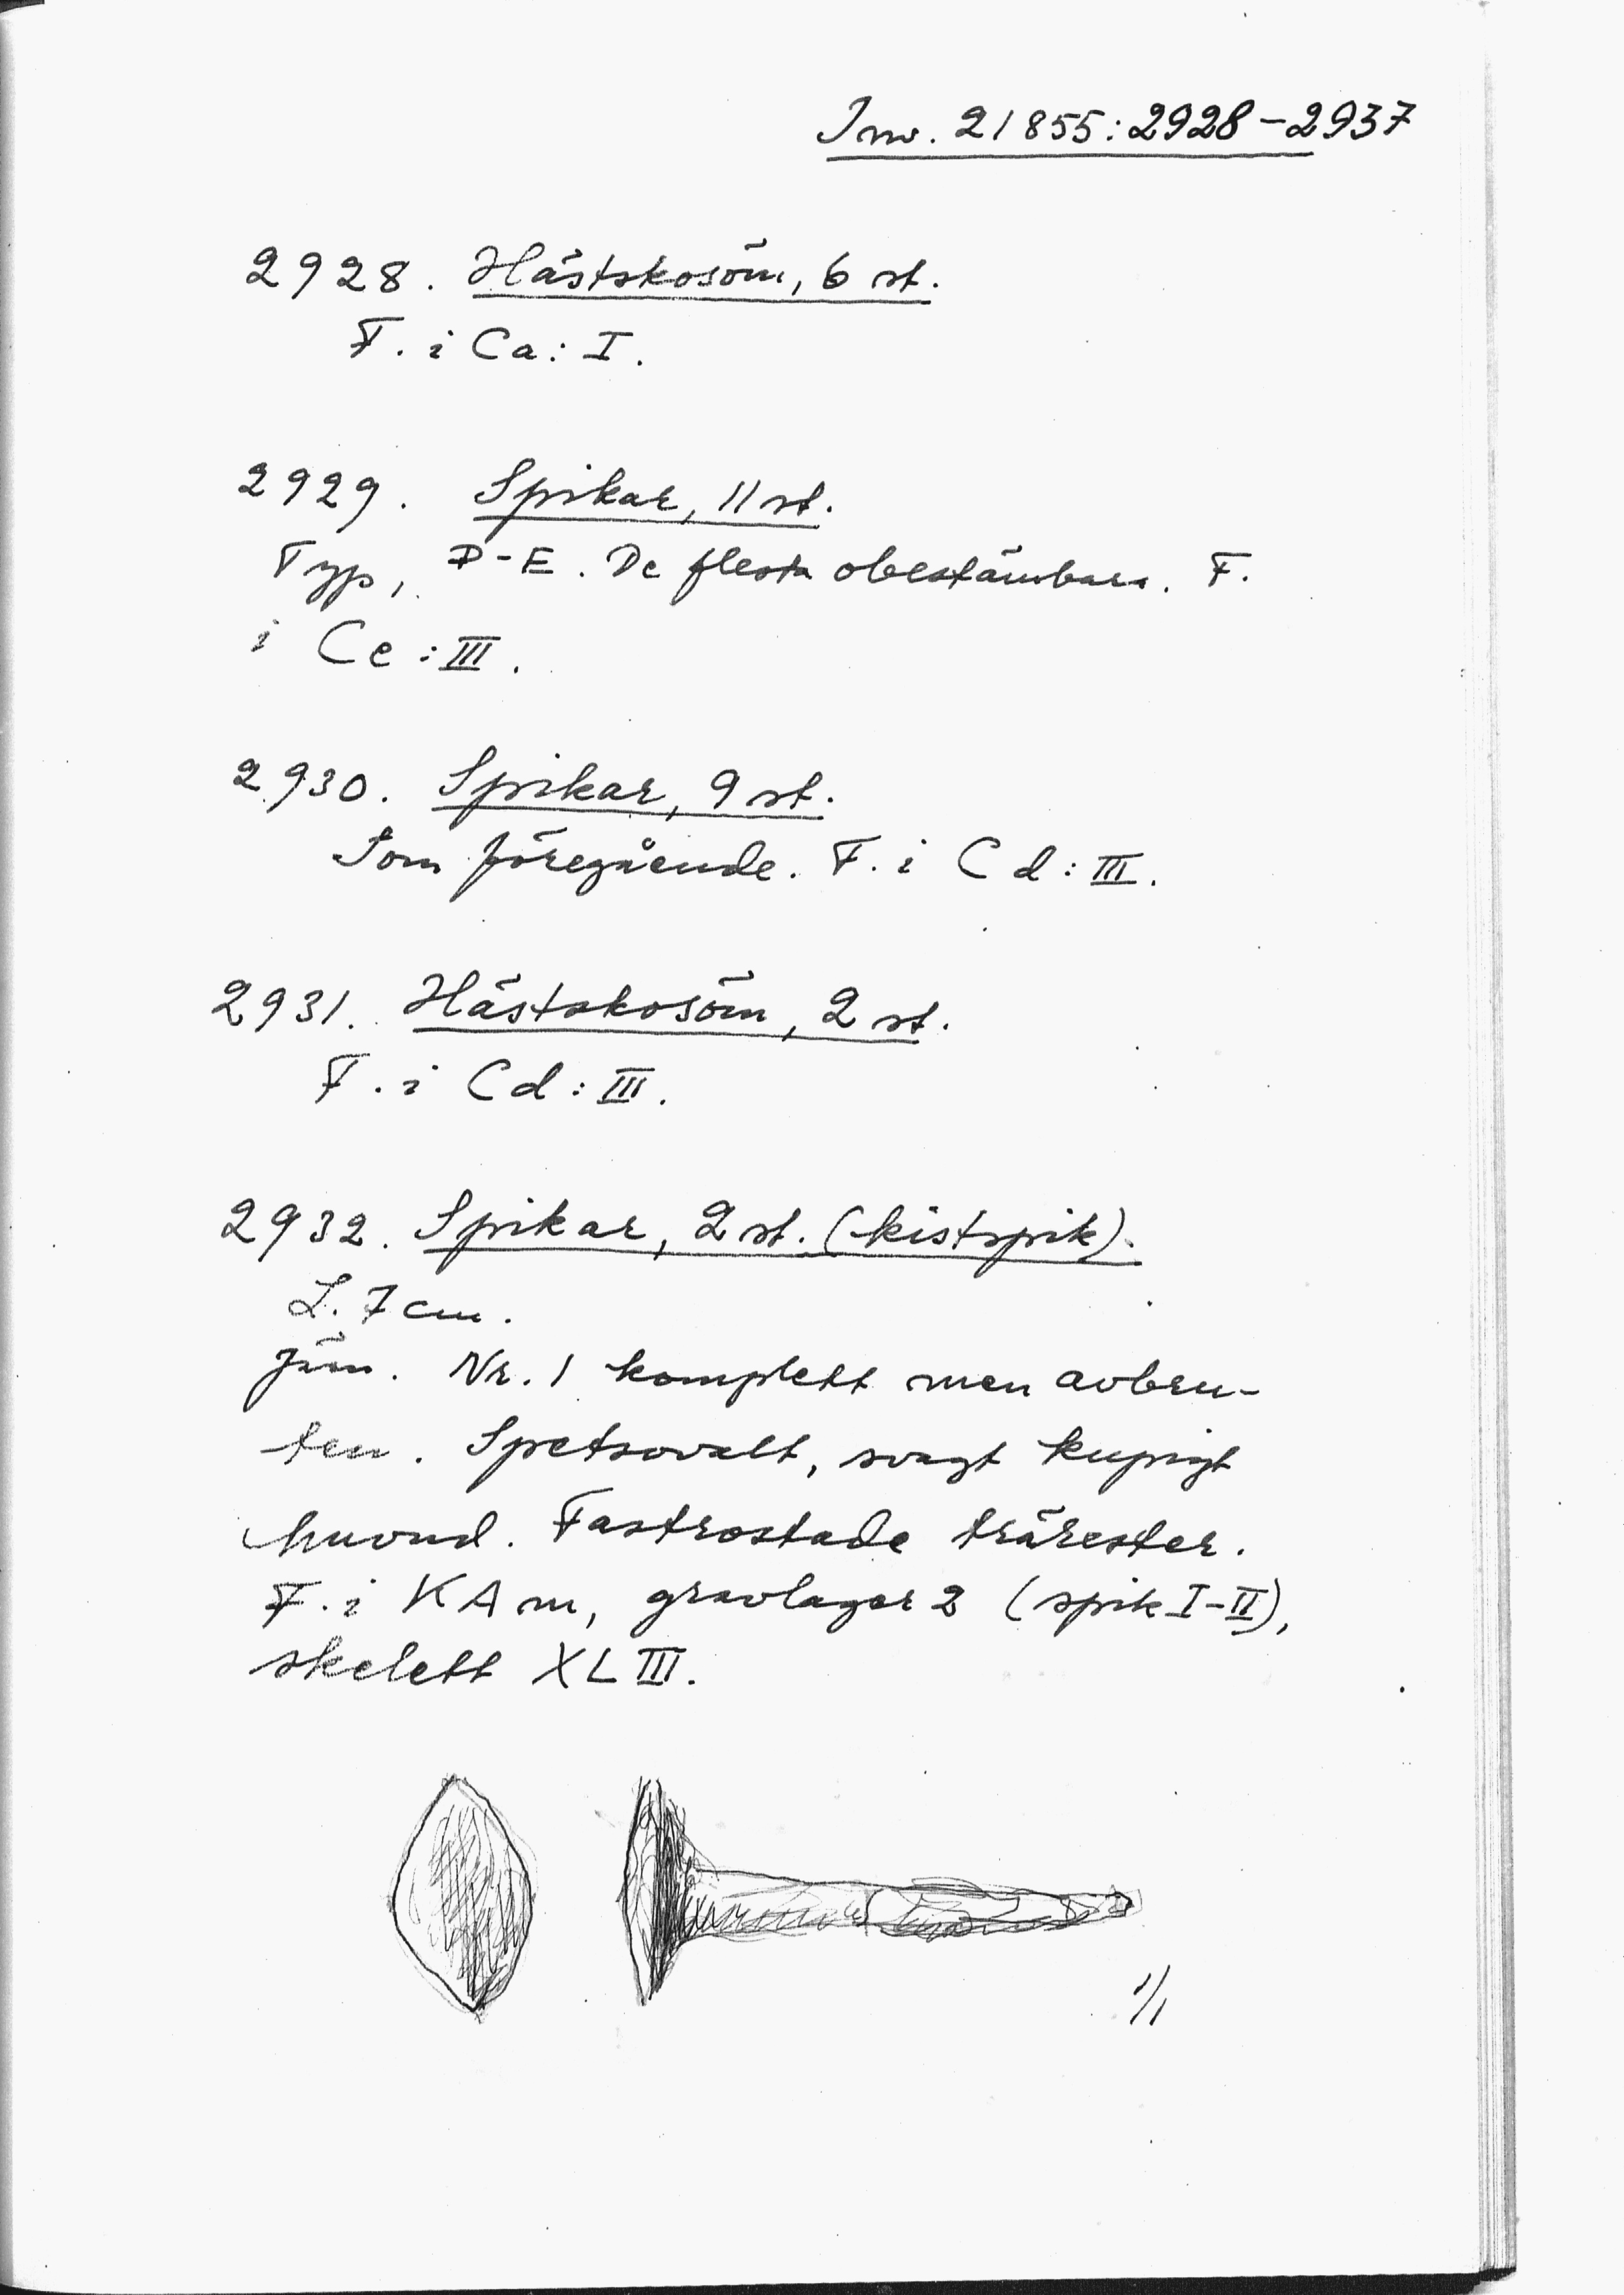 Inv. 21855:2928-2937
2928. Hästskosöm, 6 st.
F. i Ca: I.
2929. Spikar, 11 st.
Typ, D-E. De flesta obestämbara. F.
i Ce: III.
2930. Spikar, 9 st.
Som föregående. F. i Cd: III.
2931. Hästskosöm, 2 st.
F. i Cd: III.
2932. Spikar, 2 st. (kistspik).
L. 7 cm.
Järn. Nr. 1 komplett men avbru-
ten. Spetsovalt, svagt kupigt
huvud. Fastrostade trärester.
F. i KA m, gravlager 2 (spik I-II),
skelett XLIII.
1/1